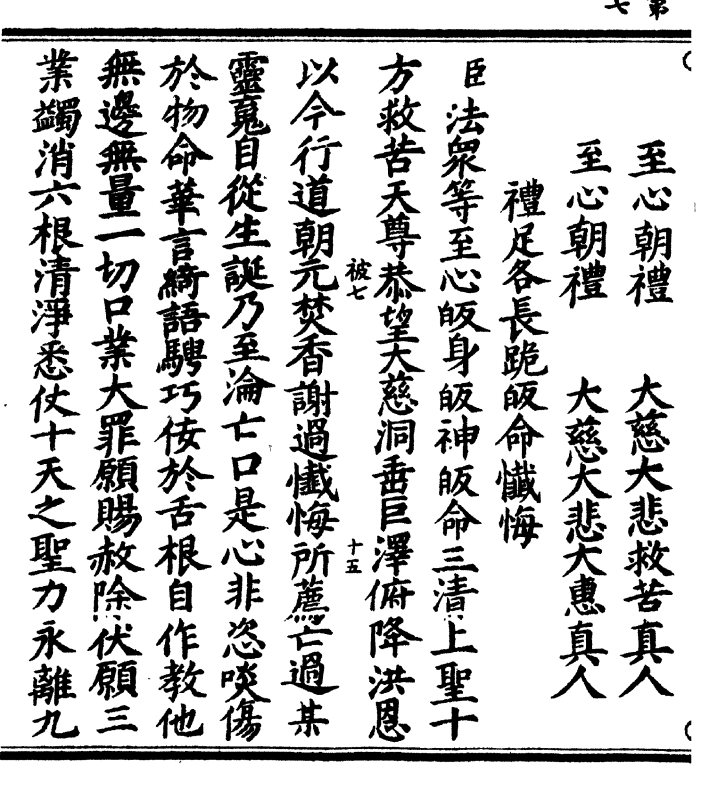 第七
至心朝禮 大慈大悲救苦真人
至心朝禮 大慈大悲大惠真人
禮足各長跪皈命懺悔
臣法衆等至心皈身皈神皈命三清上聖十
方救苦天尊恭望大慈洞垂巨澤俯降洪恩
被七 十五
以今行道朝元焚香謝過懺悔所薦亡過某
靈䰟自從生誕乃至淪亡口是心非恣啖傷
於物命華言綺語騁巧佞於舌根自作教他
無邊無量一切口業大罪願賜赦除伏願三
業蠲消六根清淨悉仗十天之聖力永離九